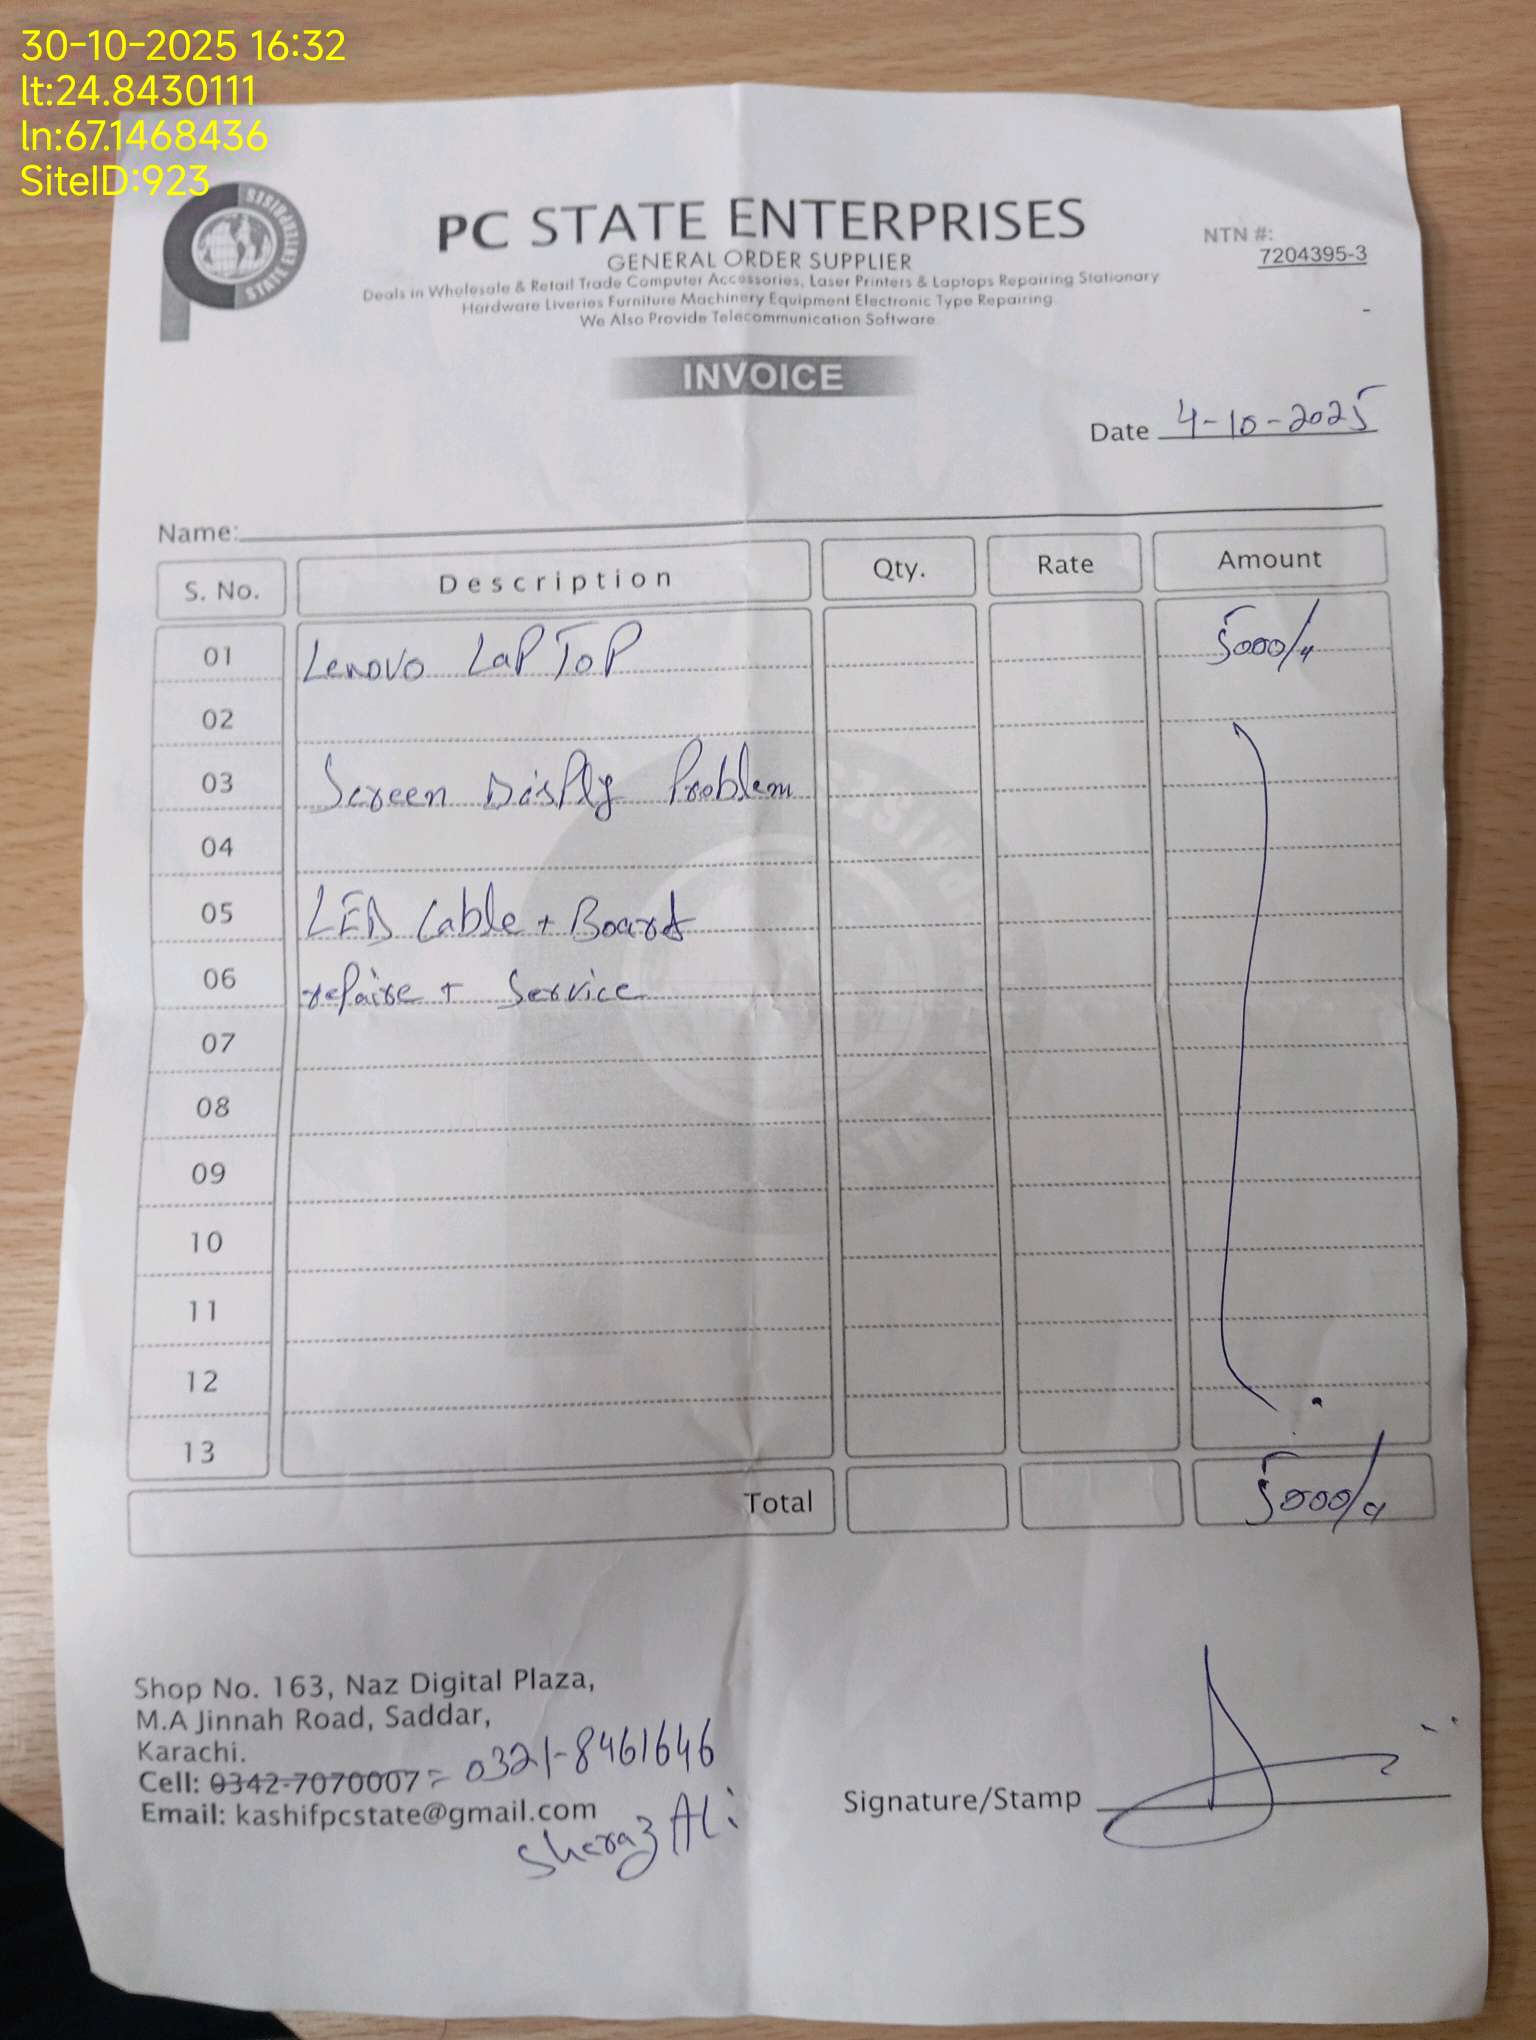 30-10-2025 16:32
lt:24.8430111
ln:67.1468436
SiteID:923
STATE ENTERPRISES
PC STATE ENTERPRISES
NTN #:
7204395-3
GENERAL ORDER SUPPLIER
Deals in Wholesale & Retail Trade Computer Accessories, Laser Printers & Laptops Repairing Stationary
Hardware Liveries Furniture Machinery Equipment Electronic Type Repairing
We Also Provide Telecommunication Software
INVOICE
Date 4-10-2025
Name:
S. No. Description Qty. Rate Amount
01 Lenovo LaPToP 5000/-
02
03 Screen DisPly Problem
04
05 LED Cable + Board
06 rePaire + Service
07
08
09
10
11
12
13
Total 5000/-
Shop No. 163, Naz Digital Plaza,
M.A Jinnah Road, Saddar,
Karachi.
Cell: 0342-7070007 = 0321-8461646
Email: kashifpcstate@gmail.com
Sheraz Ali
Signature/Stamp